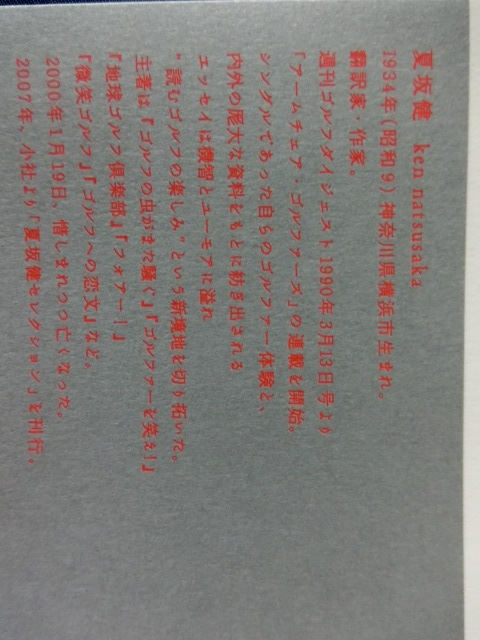 夏坂健 ken natsusaka
1934年(昭和9)神奈川県横浜市生まれ。
翻訳家・作家。
週刊ゴルフダイジェスト1990年3月13日号より
「アームチェア・ゴルファーズ」の連載を開始。
シングルであった自らのゴルファー体験と、
内外の尨大な資料をもとに紡ぎ出される
エッセイは機智とユーモアに溢れ
"読むゴルフの楽しみ"という新境地を切り拓いた。
主著は『ゴルフの虫がまた騒ぐ』『ゴルファーを笑え!』
『地球ゴルフ倶楽部』『フォアー!』
『微笑ゴルフ』『ゴルフへの恋文』など。
2000年1月19日、惜しまれつつ亡くなった。
2007年、小社より「夏坂健セレクション」を刊行。